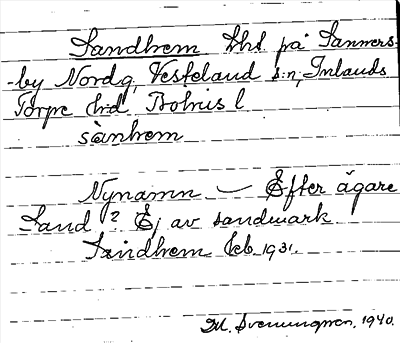 Sandhem Lht på Sanners-
-by Nordg, Vesteland s:n, Inlands
Torpe hd Bohus l
sànhem
Nynamn — Efter ägare
Sand ? Ej av sandmark
Sandhem Ecb 1931.
M. Svenungsson, 1940.